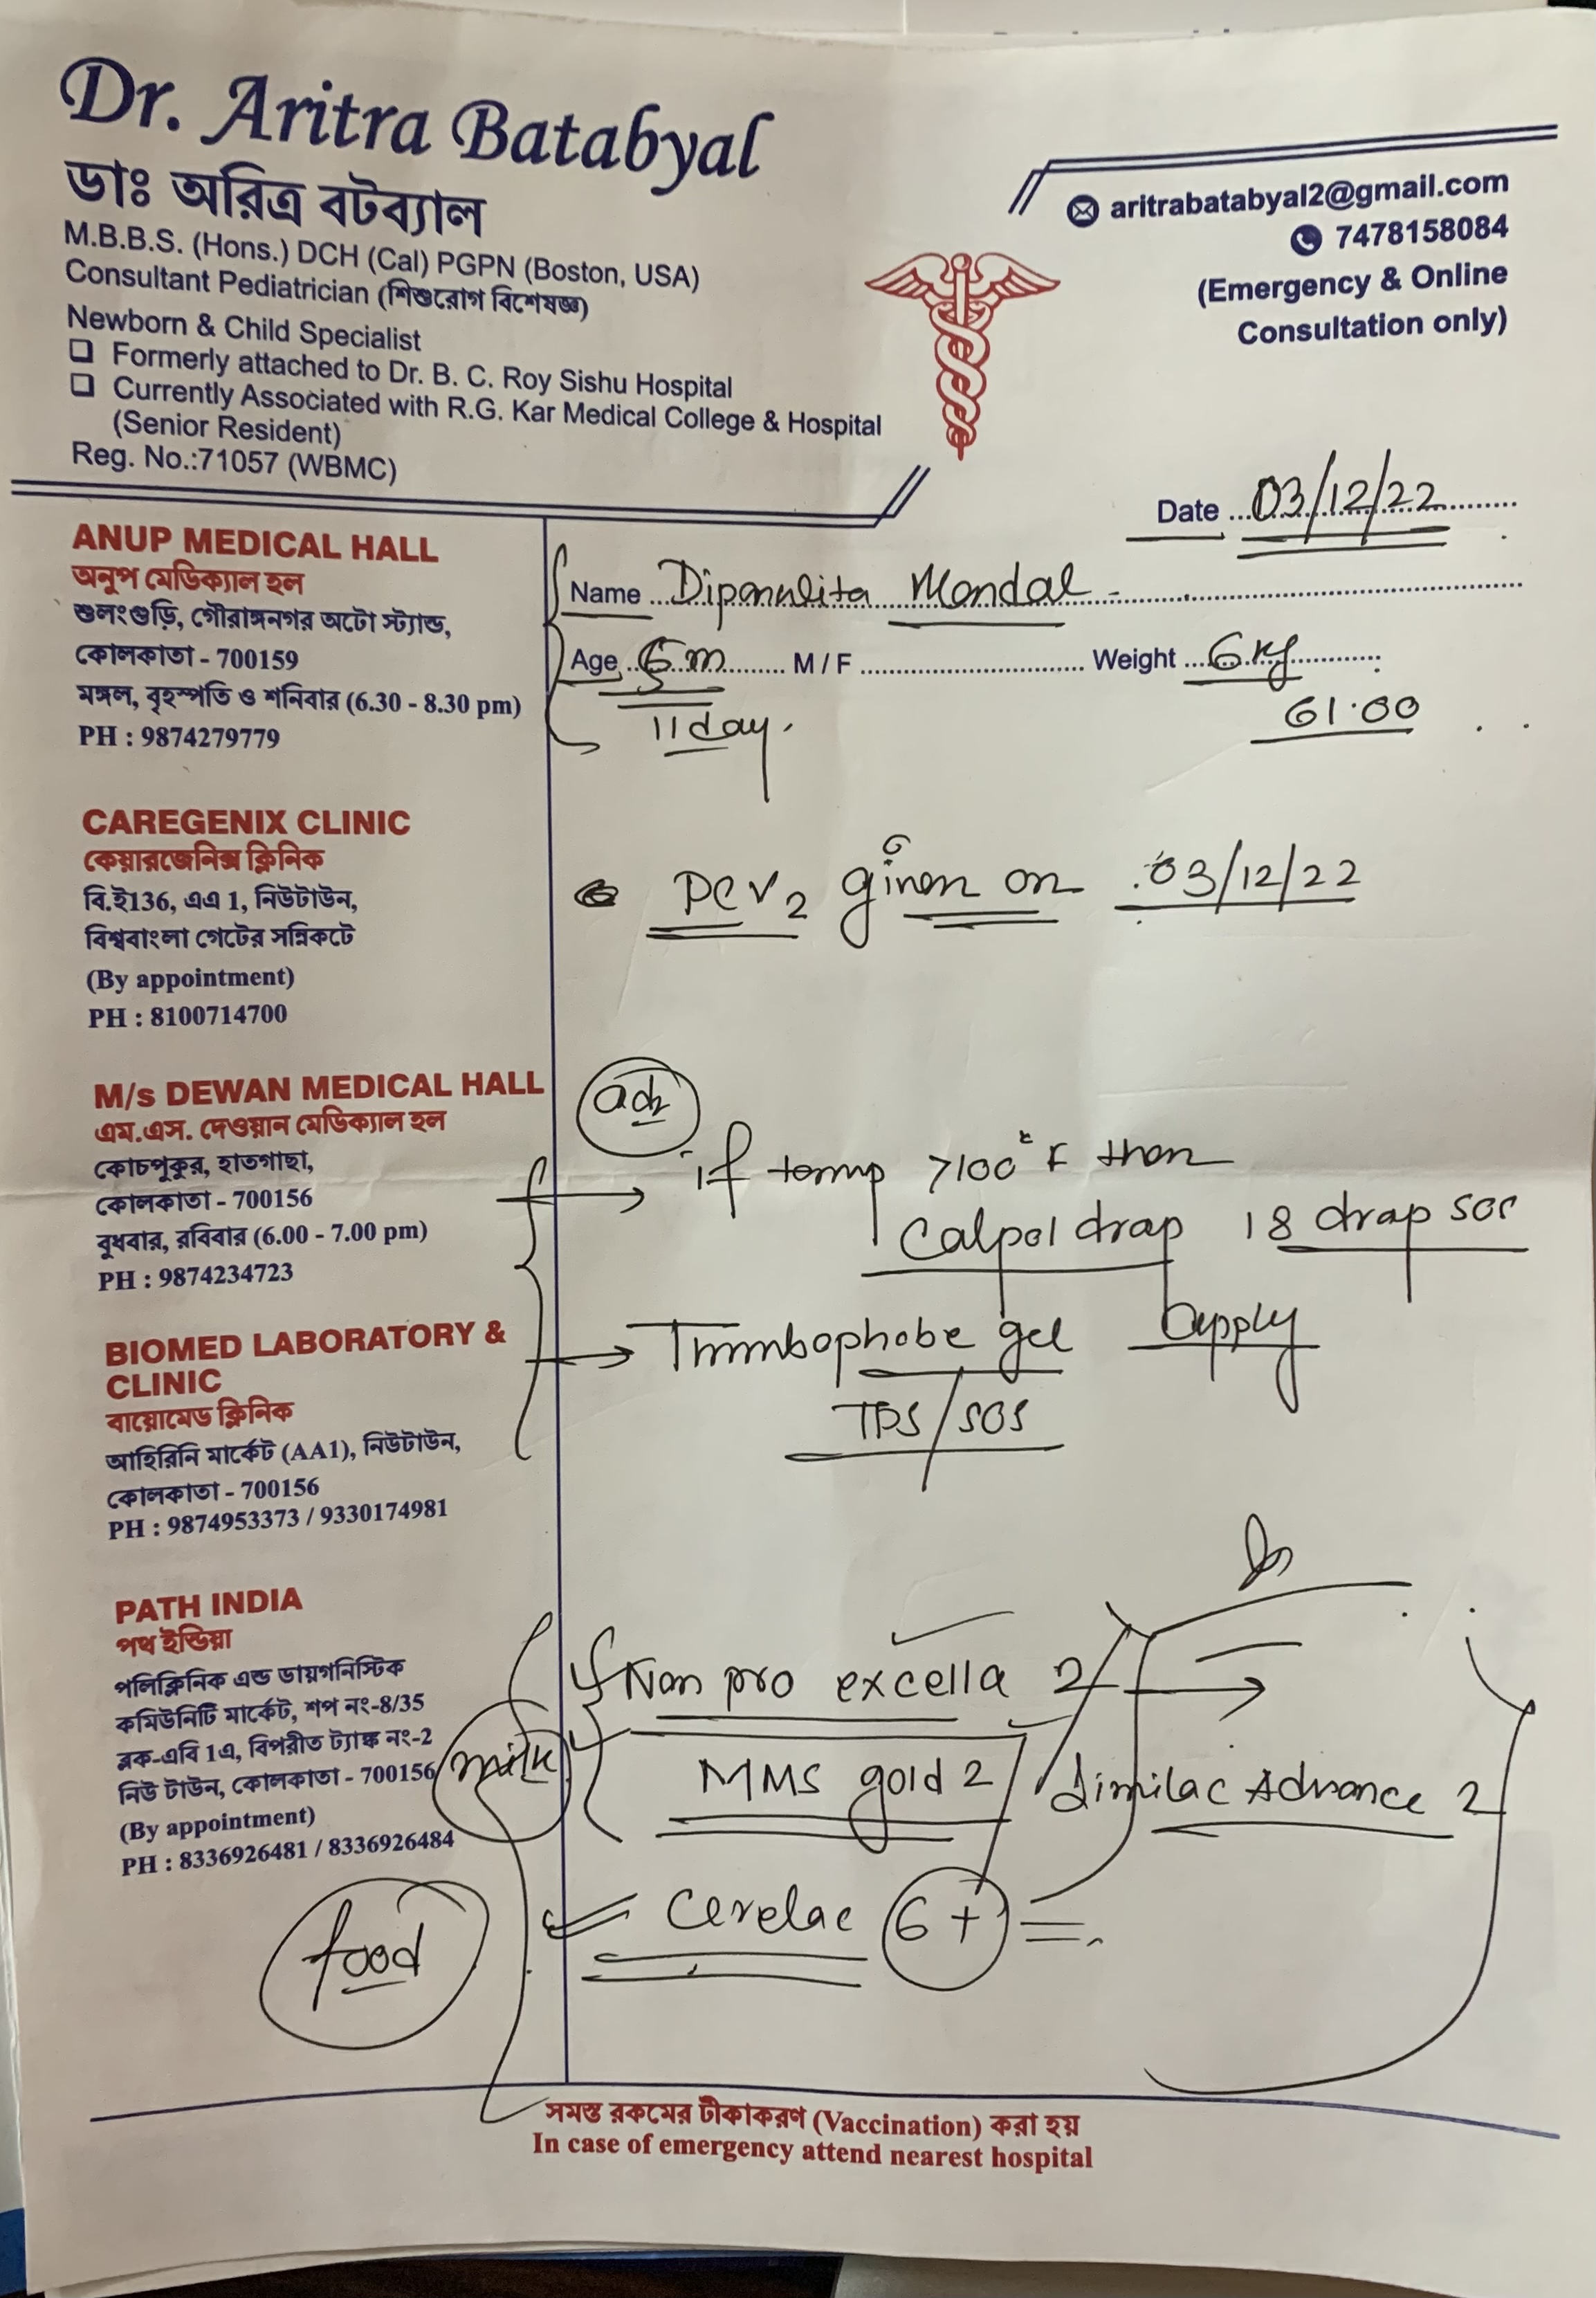 Dr. Aritra Batabyal
ডাঃ অরিত্র বটব্যাল
M.B.B.S. (Hons.) DCH (Cal) PGPN (Boston, USA)
Consultant Pediatrician (শিশুরোগ বিশেষজ্ঞ)
Newborn & Child Specialist
Formerly attached to Dr. B. C. Roy Sishu Hospital
Currently Associated with R.G. Kar Medical College & Hospital
(Senior Resident)
Reg. No.:71057 (WBMC)
aritrabatabyal2@gmail.com
7478158084
(Emergency & Online
Consultation only)
Date 03/12/22
ANUP MEDICAL HALL
অনুপ মেডিক্যাল হল
শুলংগুড়ি, গৌরাঙ্গনগর অটো স্ট্যান্ড,
কোলকাতা - 700159
মঙ্গল, বৃহস্পতি ও শনিবার (6.30 - 8.30 pm)
PH : 9874279779
CAREGENIX CLINIC
কেয়ারজেনিক্স ক্লিনিক
বি.ই136, এএ 1, নিউটাউন,
বিশ্ববাংলা গেটের সন্নিকটে
(By appointment)
PH : 8100714700
M/s DEWAN MEDICAL HALL
এম.এস. দেওয়ান মেডিক্যাল হল
কোচপুকুর, হাতগাছা,
কোলকাতা - 700156
বুধবার, রবিবার (6.00 - 7.00 pm)
PH : 9874234723
BIOMED LABORATORY &
CLINIC
বায়োমেড ক্লিনিক
আহিরিনি মার্কেট (AA1), নিউটাউন,
কোলকাতা - 700156
PH : 9874953373 / 9330174981
PATH INDIA
পথ ইন্ডিয়া
পলিক্লিনিক এন্ড ডায়গনিস্টিক
কমিউনিটি মার্কেট, শপ নং-8/35
ব্লক-এবি 1এ, বিপরীত ট্যাঙ্ক নং-2
নিউ টাউন, কোলকাতা - 700156
(By appointment)
PH : 8336926481 / 8336926484
Name Mondal
Age m M / F Weight 6 kg
11 day.
61.00
PCV2 given on 03/12/22
adv
if temp >100° F then
Calpol drop 18 drop SOS
Thrombophobe gel apply
TDS/SOS
milk
Nan pro excella 2
MMS gold 2 / Similac Advance 2
food
Cerelac 6+
সমস্ত রকমের টীকাকরণ (Vaccination) করা হয়
In case of emergency attend nearest hospital